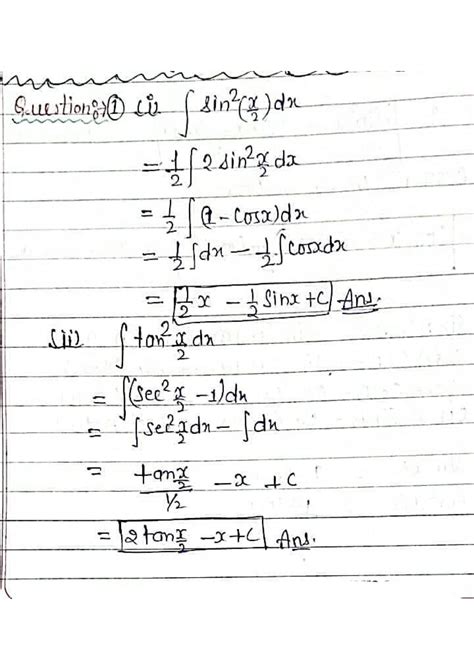 Question:→① (i) ∫ sin²(x/2) dx
= 1/2 ∫ 2 sin² x/2 dx
= 1/2 ∫ (1 - cosx) dx
= 1/2 ∫ dx - 1/2 ∫ cosx dx
= 1/2 x - 1/2 sinx + C Ans.
(ii) ∫ tan² x/2 dx
= ∫ (sec² x/2 - 1) dx
= ∫ sec² x/2 dx - ∫ dx
= tan x/2 / 1/2 - x + C
= 2 tan x/2 - x + C Ans.